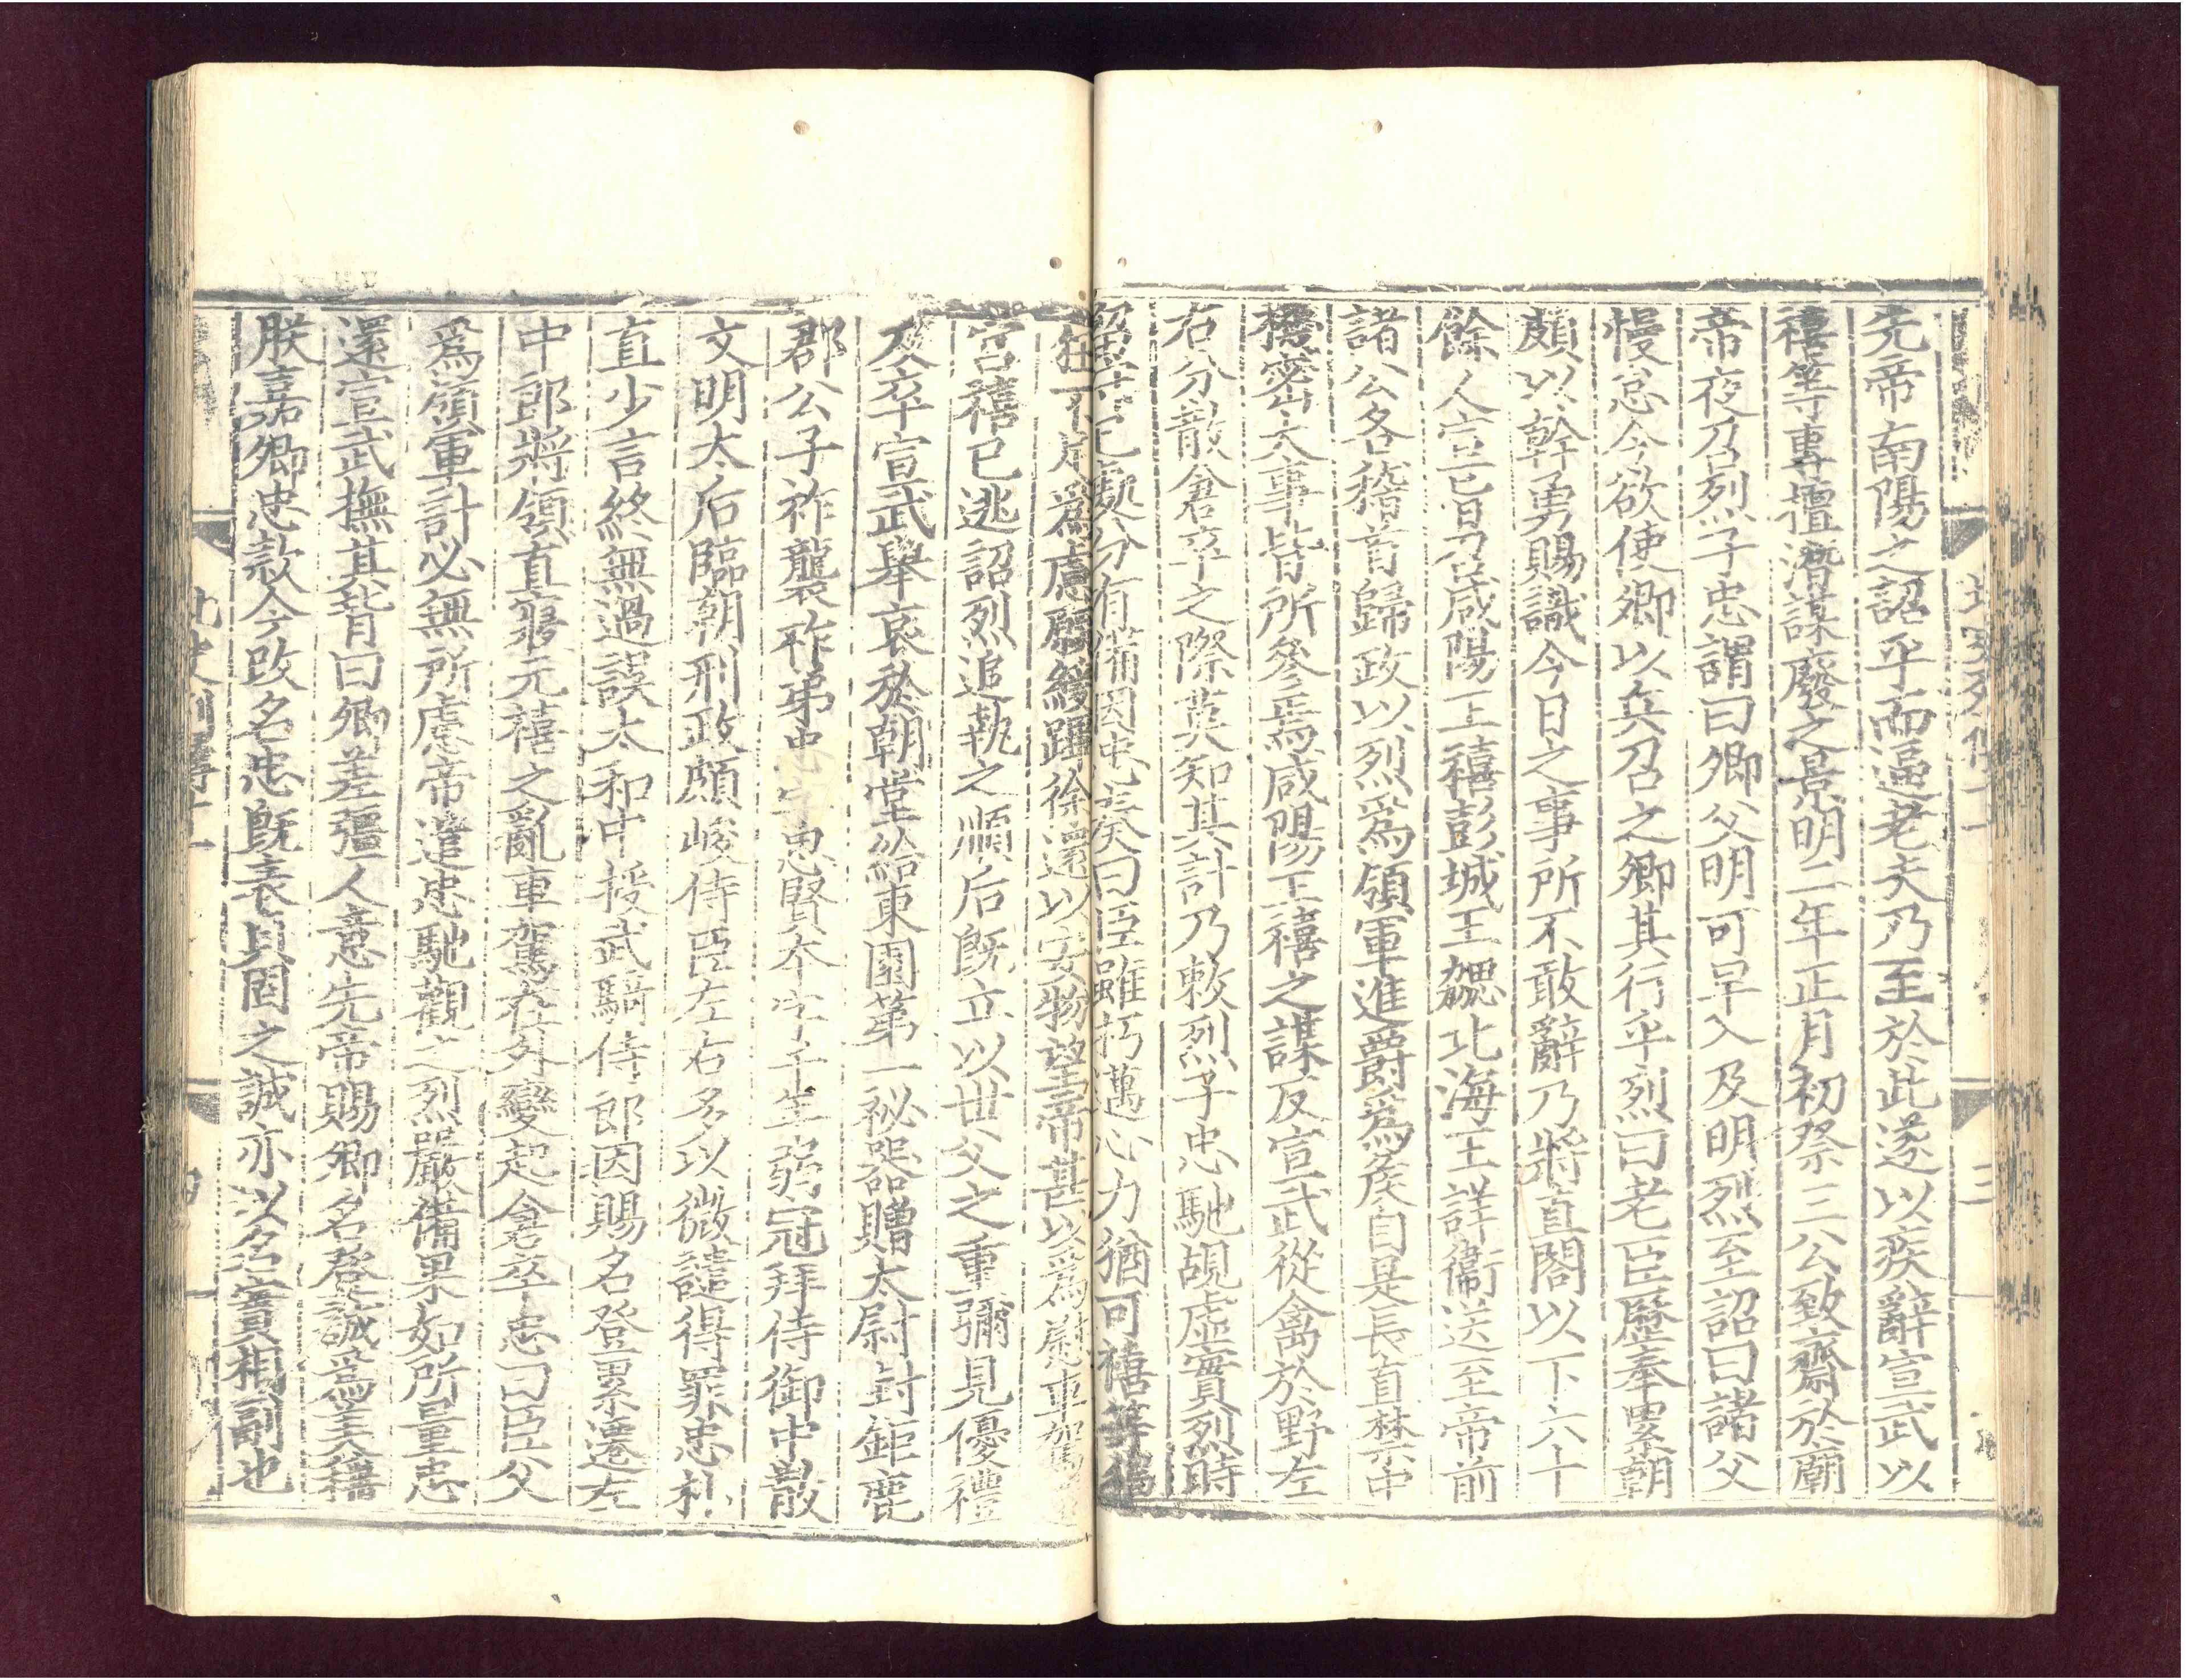 先帝南陽之詔乎而逼老夫乃至於此遂以疾辭宣武以
禧等專擅潛謀廢之景明二年正月初祭三公致齋於廟
帝夜召烈子忠謂曰卿父明可早入及明烈至詔曰諸父
慢怠今欲使卿以兵召之卿其行乎烈曰老臣歷奉累朝
頗以幹勇賜識今日之事所不敢辭乃將直閤以下六十
餘人宣旨召咸陽王禧彭城王勰北海王詳衞送至帝前
諸公各稽首歸政以烈爲領軍進爵爲侯自是長直禁中
機密大事皆所參焉咸陽王禧之謀反宣武從禽於野左
右分散倉卒之際莫知其計乃敕烈子忠馳覘虛實烈時
留守已處分有備因忠奏曰臣雖朽邁心力猶可禧等猖
狂不足爲慮願緩蹕徐還以安物望帝甚以爲慰車駕
宮禧已逃詔烈追執之順后旣立以世父之重彌見優禮
及卒宣武舉哀於朝堂給東園第一祕器贈太尉封鉅鹿
郡公子祚襲祚弟忠忠字思賢本字千年弱冠拜侍御中散
文明太后臨朝刑政頗峻侍臣左右多以微譴得罪忠朴
直少言終無過誤太和中授武騎侍郎因賜名登累遷左
中郎將領直寢元禧之亂車駕在外變起倉卒忠曰臣父
爲領軍計必無所慮帝遣忠馳觀之烈嚴備果如所量忠
還宣武撫其背曰卿差彊人意先帝賜卿名登誠爲美稱
朕嘉卿忠款今改名忠旣表貞固之誠亦以名實相副也
北史列傳十一